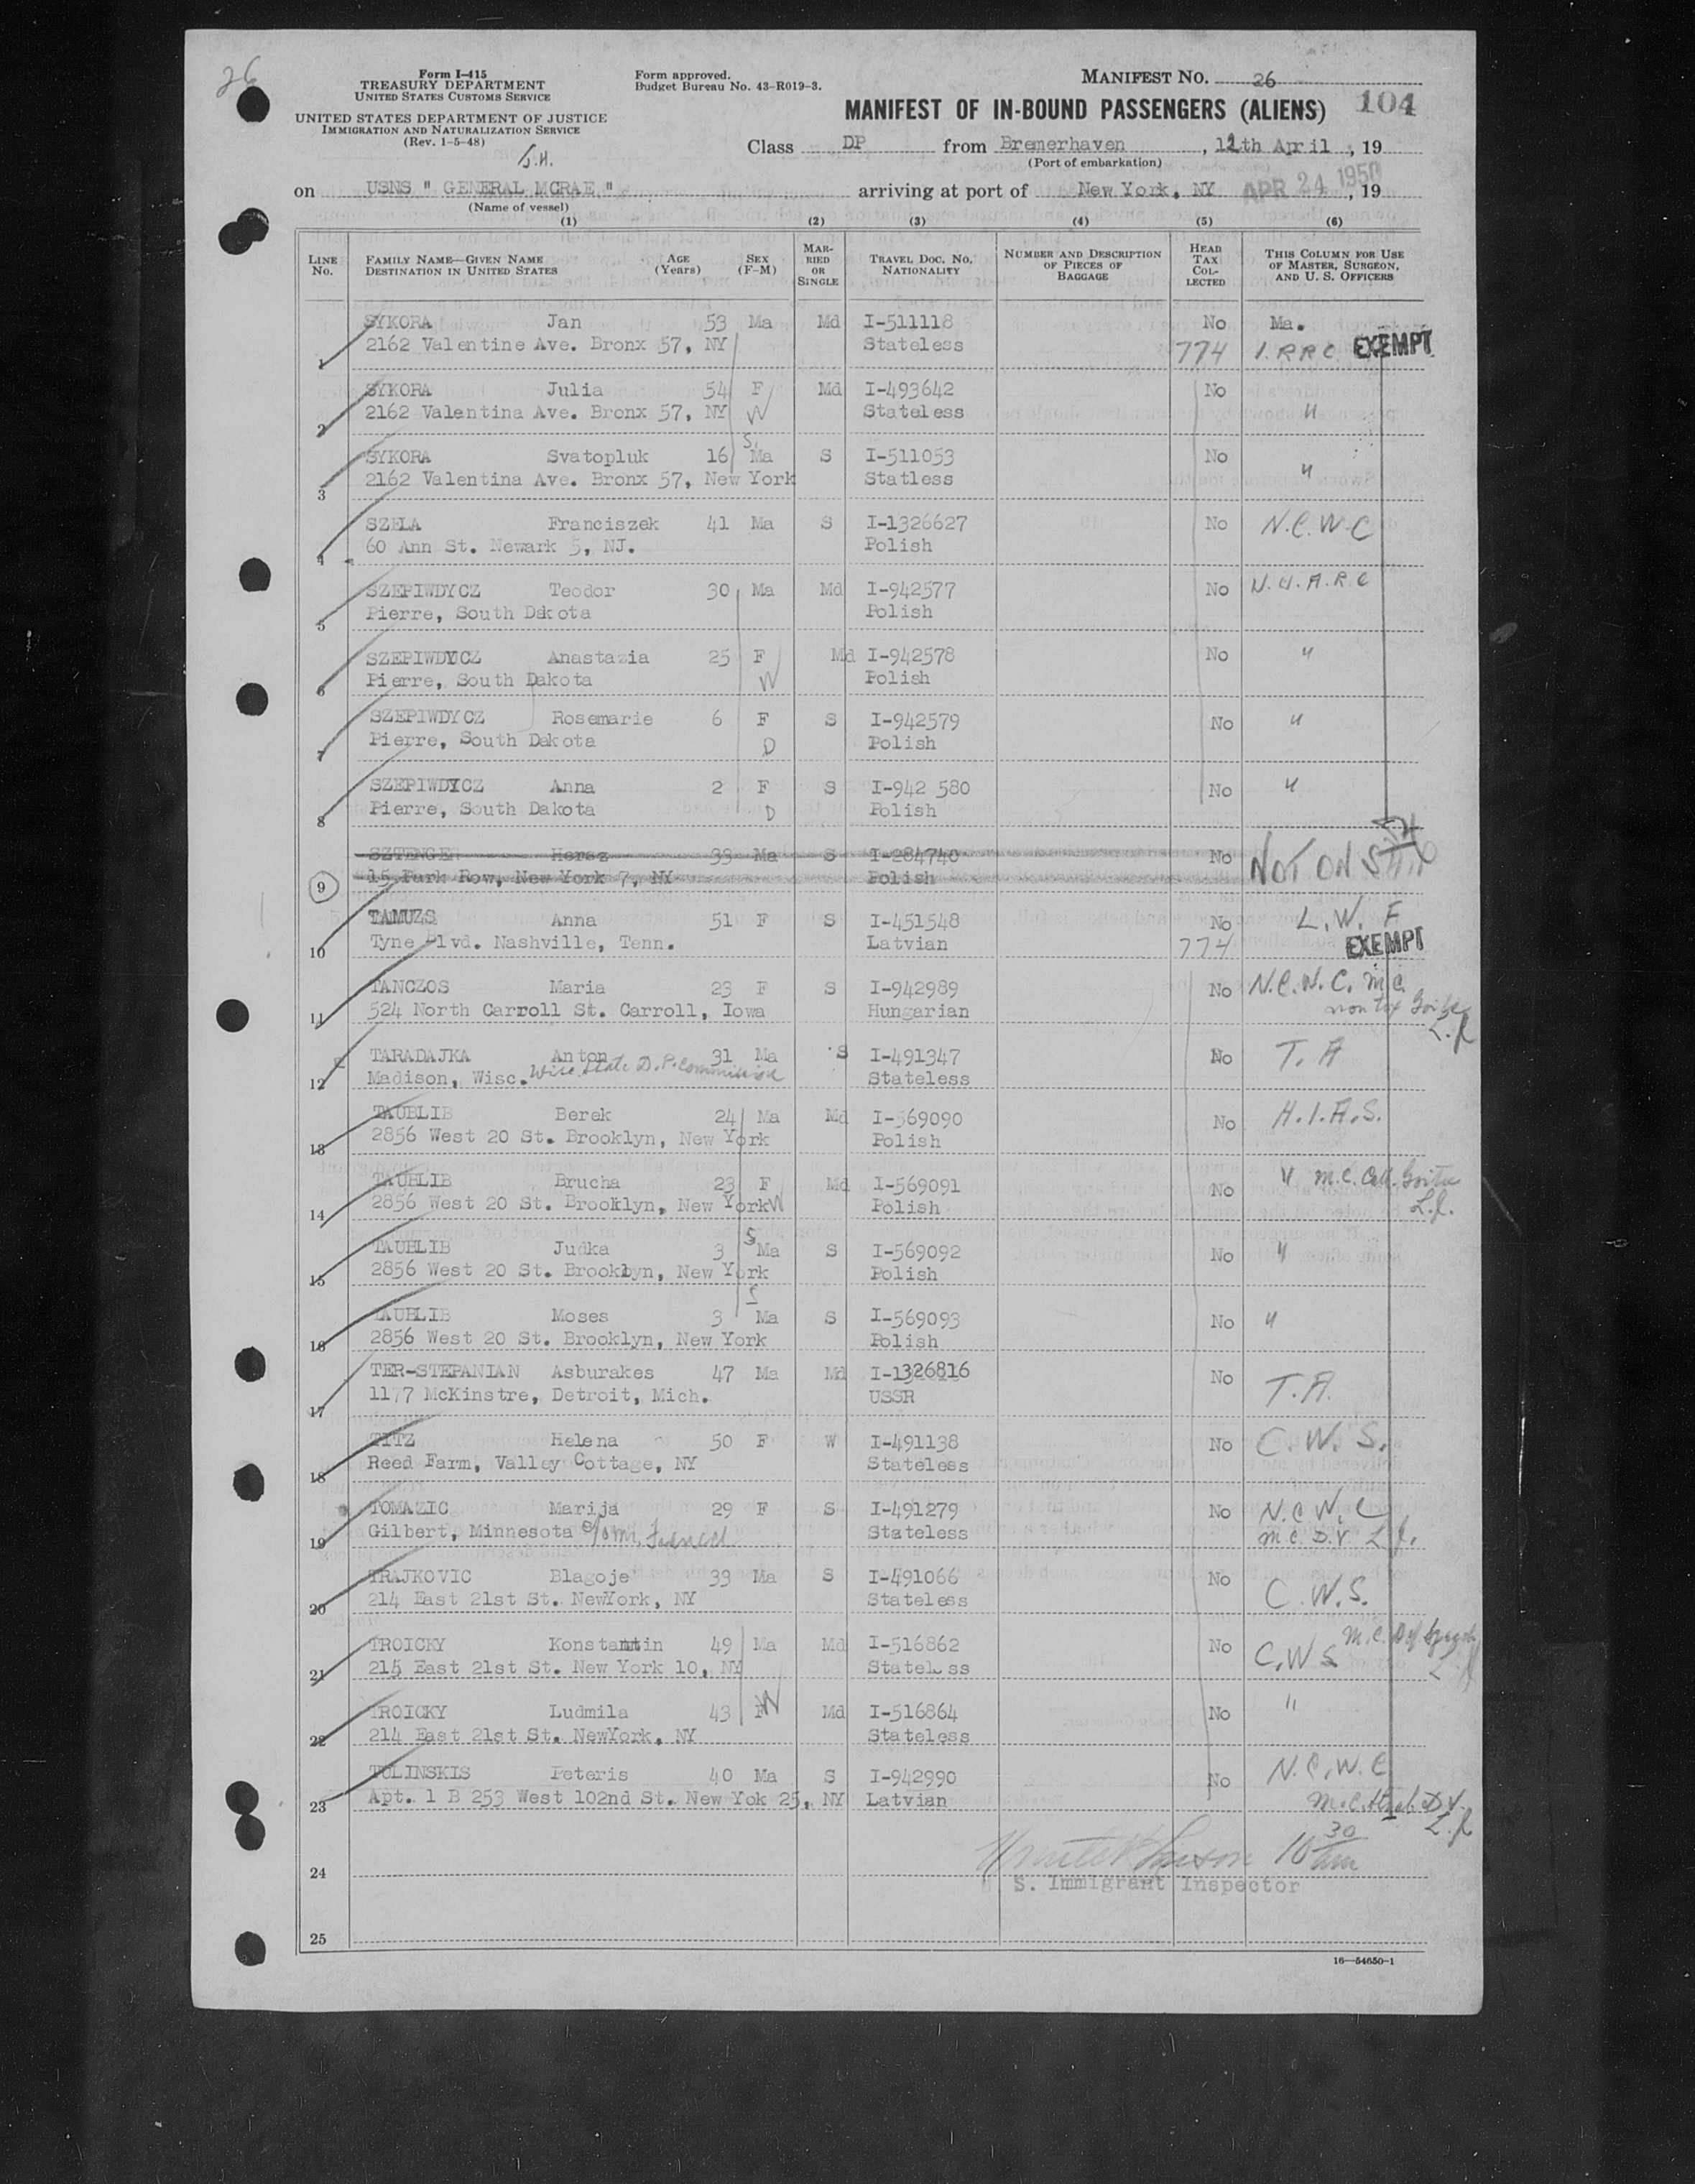 26
Form I-415
TREASURY DEPARTMENT
UNITED STATES CUSTOMS SERVICE
UNITED STATES DEPARTMENT OF JUSTICE
IMMIGRATION AND NATURALIZATION SERVICE
(Rev. 1-5-48)
Form approved.
Budget Bureau No. 43-R019-3.
MANIFEST NO. 26
MANIFEST OF IN-BOUND PASSENGERS (ALIENS) 104
Class DP from Bremerhaven, 12th April, 19
(Port of embarkation)
on USNS " GENERAL MCRAE " arriving at port of New York, NY APR 24 1950, 19
(Name of vessel)
(1) (2) (3) (4) (5) (6)
LINE No. FAMILY NAME—GIVEN NAME DESTINATION IN UNITED STATES AGE (Years) SEX (F-M) MARRIED OR SINGLE TRAVEL DOC. NO. NATIONALITY NUMBER AND DESCRIPTION OF PIECES OF BAGGAGE HEAD TAX COLLECTED THIS COLUMN FOR USE OF MASTER, SURGEON, AND U. S. OFFICERS
SYKORA Jan 53 Ma Md I-511118 No Ma.
1 2162 Valentine Ave. Bronx 57, NY Stateless 774 I.R.R.C. EXEMPT
SYKORA Julia 54 F Md I-493642 No
2 2162 Valentina Ave. Bronx 57, NY W Stateless "
SYKORA Svatopluk 16 S. Ma S I-511053 No
3 2162 Valentina Ave. Bronx 57, New York Statless "
SZELA Franciszek 41 Ma S I-1326627 No N.C.W.C
4 60 Ann St. Newark 5, NJ. Polish
SZEPIWDYCZ Teodor 30 Ma Md I-942577 No N.U.A.R.C
5 Pierre, South Dakota Polish
SZEPIWDYCZ Anastazia 25 F Md I-942578 No "
6 Pierre, South Dakota W Polish
SZEPIWDYCZ Rosemarie 6 F S I-942579 No "
7 Pierre, South Dakota D Polish
SZEPIWDYCZ Anna 2 F S I-942 580 No "
8 Pierre, South Dakota D Polish
SZTENGER Hersz 33 Ma S I-284740 No NOT ON SHIP
9 15 Park Row, New York 7, NY Polish
TAMUZS Anna 51 F S I-451548 No L.W.F
10 Tyne Blvd. Nashville, Tenn. Latvian 774 EXEMPT
TANCZOS Maria 23 F S I-942989 No N.C.W.C. M.C.
11 524 North Carroll St. Carroll, Iowa Hungarian non tox Goitre
TARADAJKA Anton 31 Ma S I-491347 No T.A
12 Madison, Wisc. Wisc. State D.P. Commission Stateless
TAUBLIB Berek 24 Ma Md I-569090 No H.I.A.S.
13 2856 West 20 St. Brooklyn, New York Polish
TAUBLIB Brucha 23 F Md I-569091 No " M.C. Coll. Goitre
14 2856 West 20 St. Brooklyn, New York W Polish
TAUBLIB Judka 3 S Ma S I-569092 No "
15 2856 West 20 St. Brooklyn, New York Polish
TAUBLIB Moses 3 S Ma S I-569093 No "
16 2856 West 20 St. Brooklyn, New York Polish
TER-STEPANIAN Asburakes 47 Ma Md I-1326816 No T.A.
17 1177 McKinstre, Detroit, Mich. USSR
TITZ Helena 50 F W I-491138 No C.W.S.
18 Reed Farm, Valley Cottage, NY Stateless
TOMAZIC Marija 29 F S I-491279 No N.C.W.C
19 Gilbert, Minnesota c/o Mr. Stateless M.C. D.V.
TRAJKOVIC Blagoje 33 Ma S I-491066 No
20 214 East 21st St. NewYork, NY Stateless C.W.S.
TROICKY Konstantin 49 Ma Md I-516862 No C.W.S M.C. Def
21 215 East 21st St. New York 10, NY Stateless
TROICKY Ludmila 43 F W Md I-516864 No "
22 214 East 21st St. NewYork, NY Stateless
TOLINSKIS Peteris 40 Ma S I-942990 No N.C.W.C
23 Apt. 1 B 253 West 102nd St. New Yok 25, NY Latvian M.C. D.V.
24 10 30 am
S. Immigrant Inspector
25
16—54650-1